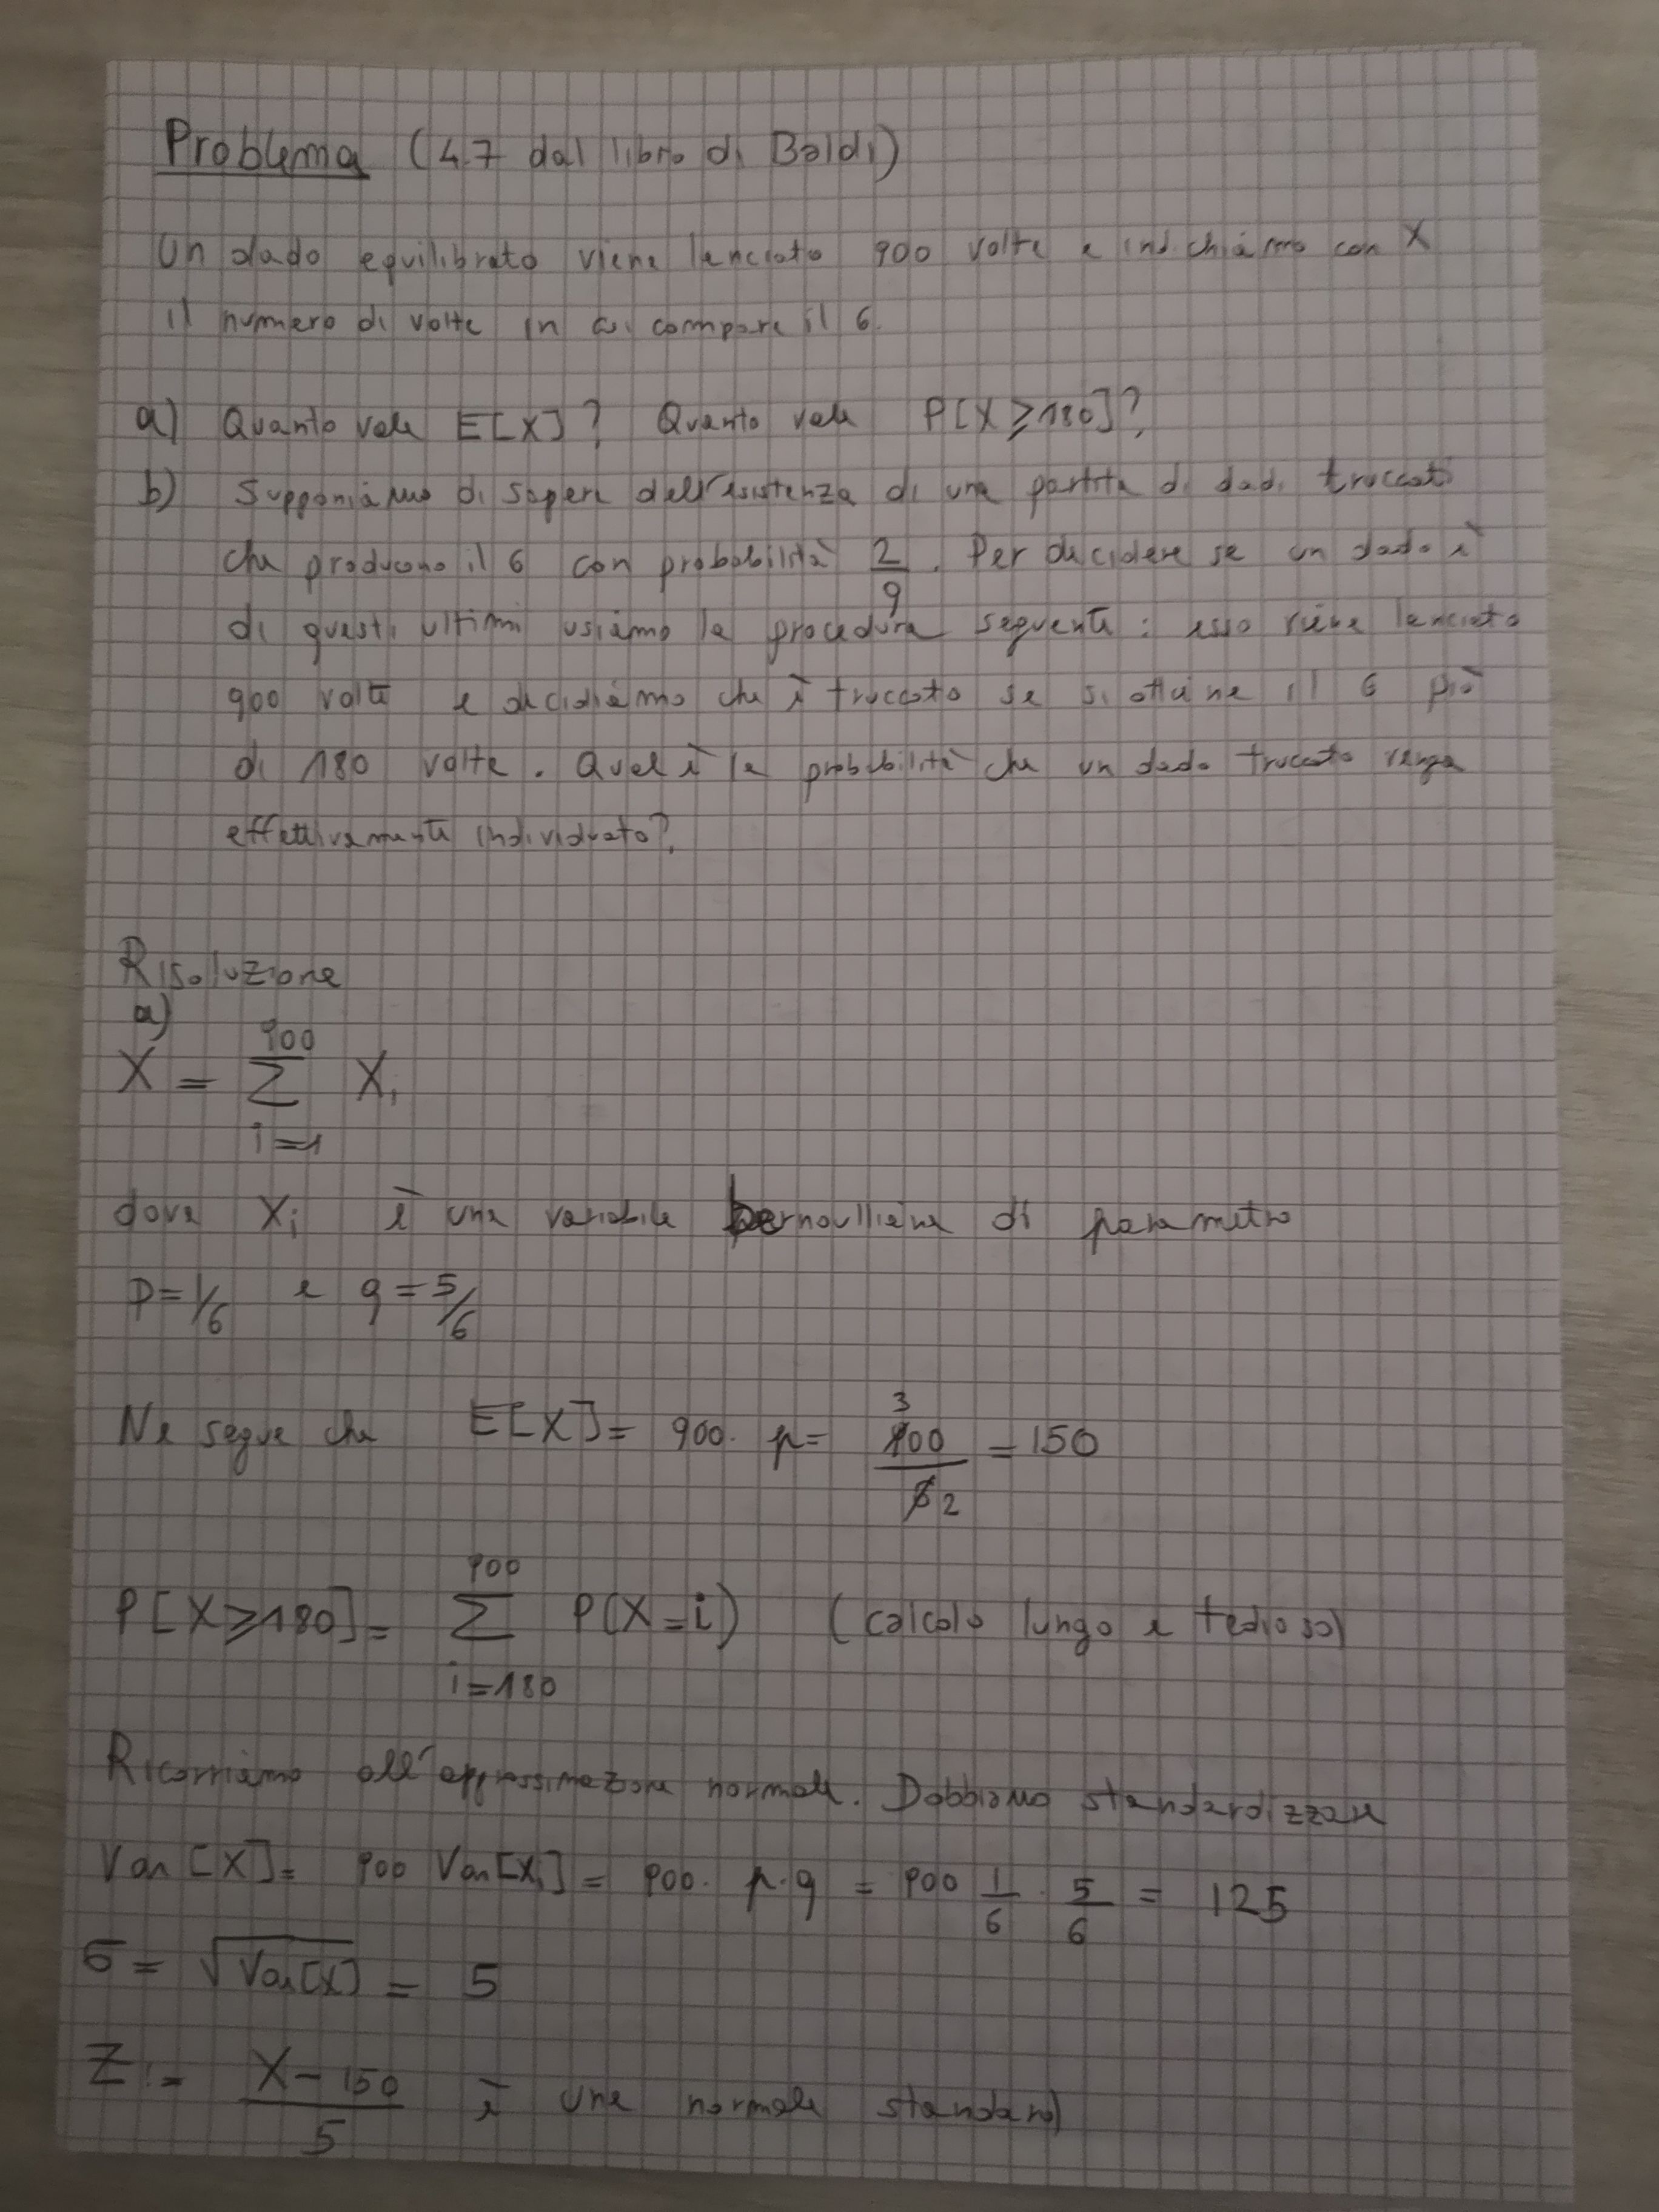 Problema (4.7 dal libro di Baldi)
Un dado equilibrato viene lanciato 900 volte e indichiamo con X
il numero di volte in cui compare il 6.
a) Quanto vale E[X]? Quanto vale P[X ≥ 180]?
b) Supponiamo di sapere dell'esistenza di una partita di dadi truccati
che producono il 6 con probabilità 2/9. Per decidere se un dado è
di questi ultimi usiamo la procedura seguente: esso viene lanciato
900 volte e decidiamo che è truccato se si ottiene il 6 più
di 180 volte. Qual è la probabilità che un dado truccato venga
effettivamente individuato?
Risoluzione
a)
X = ∑_{i=1}^{900} X_i
dove X_i è una variabile bernoulliana di parametro
p = 1/6 e q = 5/6
Ne segue che E[X] = 900 · p = 900/6 = 150
3
2
P[X ≥ 180] = ∑_{i=180}^{900} P(X = i) (calcolo lungo e tedioso)
Ricorriamo all'approssimazione normale. Dobbiamo standardizzare
Var[X] = 900 Var[X_i] = 900 · p · q = 900 1/6 · 5/6 = 125
σ = √Var[X] = 5
Z := (X - 150)/5 è una normale standard